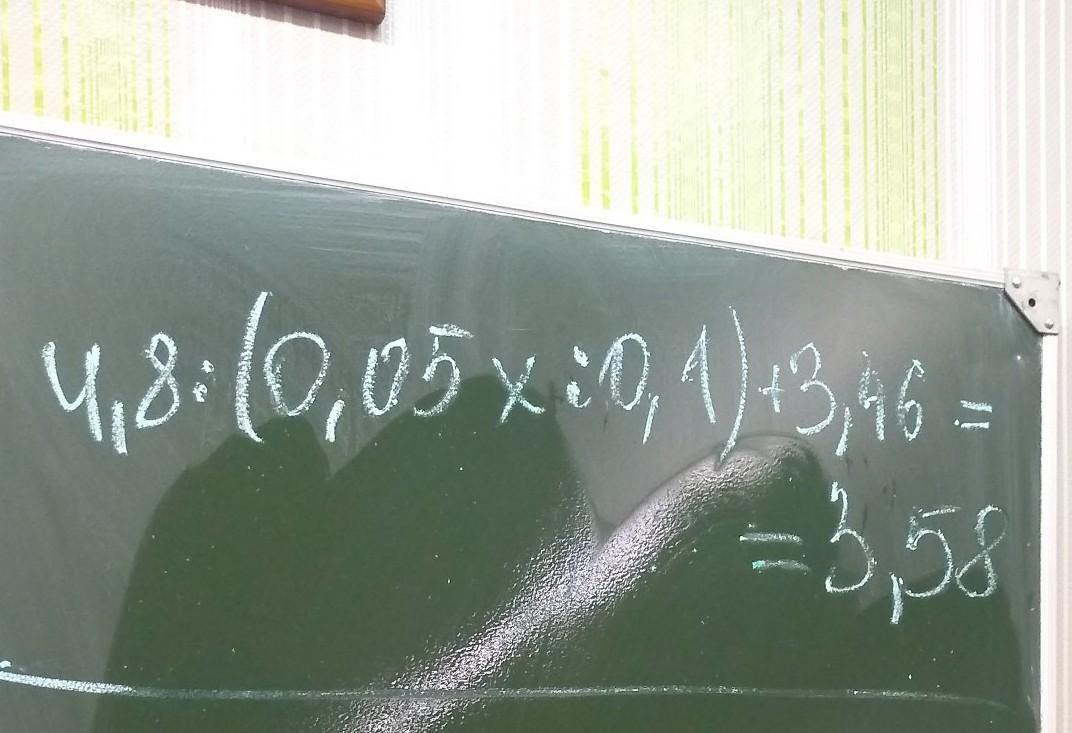 4,8:(0,05x:0,1)+3,46=
=3,58